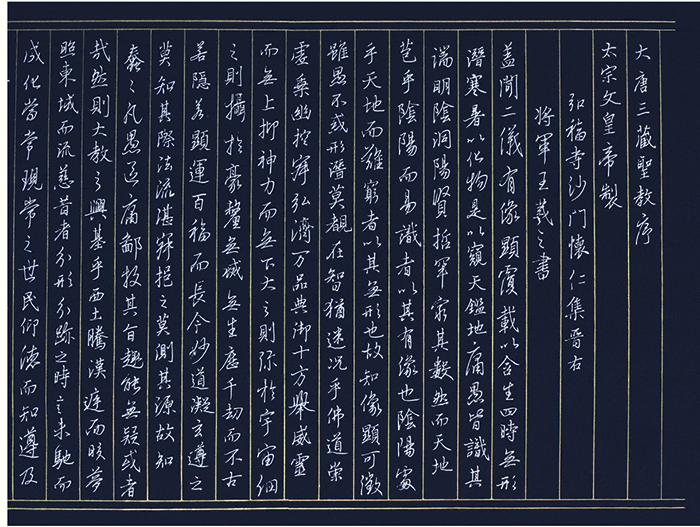 大唐三藏聖教序
太宗文皇帝製
弘福寺沙門懷仁集晉右
將軍王羲之書
蓋聞二儀有像顯覆載以含生四時無形
潛寒暑以化物是以窺天鑑地庸愚皆識其
端明陰洞陽賢哲罕窮其數然而天地
苞乎陰陽而易識者以其有像也陰陽處
乎天地而難窮者以其無形也故知像顯可徵
雖愚不惑形潛莫覩在智猶迷況乎佛道崇
虛乘幽控寂弘濟万品典御十方舉威靈
而無上抑神力而無下大之則弥於宇宙細
之則攝於豪釐無滅無生歷千劫而不古
若隱若顯運百福而長今妙道凝玄遵之
莫知其際法流湛寂挹之莫測其源故知
蠢蠢凡愚區區庸鄙投其旨趣能無疑或者
哉然則大教之興基乎西土騰漢庭而皎夢
照東域而流慈昔者分形分跡之時言未馳而
成化當常現常之世民仰德而知遵及